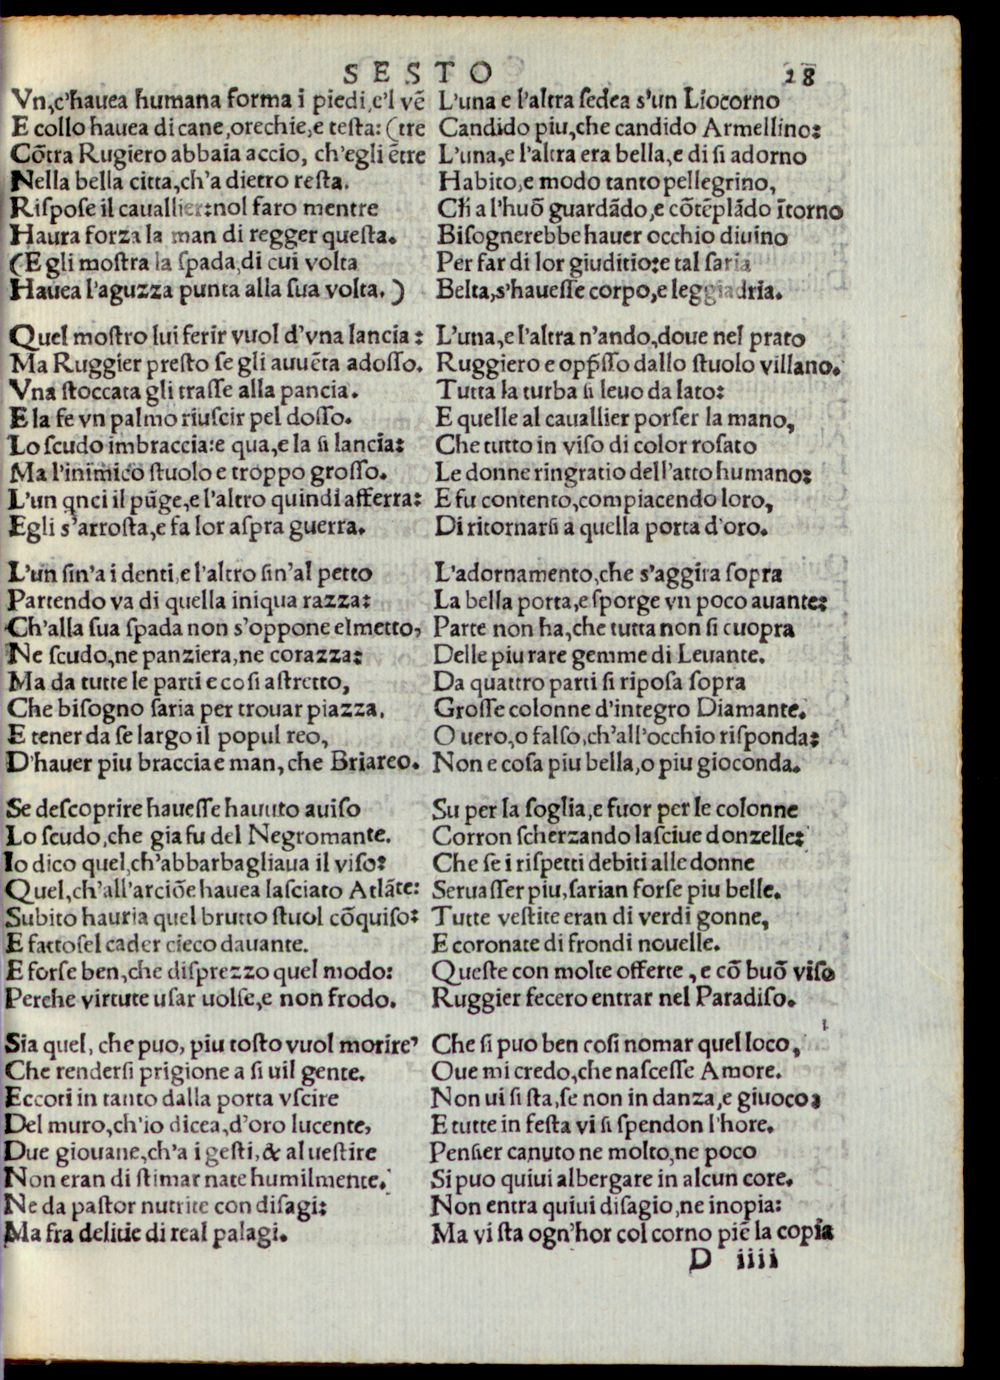 SESTO 28
Vn,c'hauea humana forma i piedi,e'l vẽ
E collo hauea di cane,orechie,e testa: (tre
Cõtra Rugiero abbaia accio, ch'egli ẽtre
Nella bella citta,ch'a dietro resta.
Rispose il cauallier:nol faro mentre
Haura forza la man di regger questa.
(E gli mostra la spada,di cui volta
Hauea l'aguzza punta alla sua volta.)
Quel mostro lui ferir vuol d'vna lancia:
Ma Ruggier presto se gli auuẽta adosso.
Vna stoccata gli trasse alla pancia.
E la fe vn palmo riuscir pel dosso.
Lo scudo imbraccia:e qua,e la si lancia:
Ma l'inimico stuolo e troppo grosso.
L'un qnci il pũge,e l'altro quindi afferra:
Egli s'arrosta,e fa lor aspra guerra.
L'un sin'a i denti,e l'altro sin'al petto
Partendo va di quella iniqua razza:
Ch'alla sua spada non s'oppone elmetto,
Ne scudo,ne panziera,ne corazza:
Ma da tutte le parti e cosi astretto,
Che bisogno saria per trouar piazza,
E tener da se largo il popul reo,
D'hauer piu braccia e man, che Briareo.
Se descoprire hauesse hauuto auiso
Lo scudo,che gia fu del Negromante.
Io dico quel,ch'abbarbagliaua il viso:
Quel,ch'all'arciõe hauea lasciato Atlãte:
Subito hauria quel brutto stuol cõquiso:
E fattosel cader cieco dauante.
E forse ben,che disprezzo quel modo:
Perche virtute usar uolse,e non frodo.
Sia quel, che puo, piu tosto vuol morire,
Che rendersi prigione a si uil gente.
Eccoti in tanto dalla porta vscire
Del muro,ch'io dicea,d'oro lucente,
Due giouane,ch'a i gesti, & al uestire
Non eran di stimar nate humilmente.
Ne da pastor nutrite con disagi:
Ma fra delitie di real palagi.
L'una e l'altra sedea s'un Liocorno
Candido piu,che candido Armellino:
L'una,e l'altra era bella,e di si adorno
Habito,e modo tanto pellegrino,
Ch a l'huõ guardãdo,e cõtẽplãdo ĩtorno
Bisognerebbe hauer occhio diuino
Per far di lor giuditio:e tal saria
Belta,s'hauesse corpo,e leggiadria.
L'una,e l'altra n'ando,doue nel prato
Ruggiero e opp̃sso dallo stuolo villano.
Tutta la turba si leuo da lato:
E quelle al cauallier porser la mano,
Che tutto in viso di color rosato
Le donne ringratio dell'atto humano:
E fu contento,compiacendo loro,
Di ritornarsi a quella porta d'oro.
L'adornamento,che s'aggira sopra
La bella porta,e sporge vn poco auante:
Parte non ha,che tutta non si cuopra
Delle piu rare gemme di Leuante.
Da quattro parti si riposa sopra
Grosse colonne d'integro Diamante.
O uero,o falso,ch'all'occhio risponda:
Non e cosa piu bella,o piu gioconda.
Su per la soglia,e fuor per le colonne
Corron scherzando lasciue donzelle:
Che se i rispetti debiti alle donne
Seruasser piu,sarian forse piu belle.
Tutte vestite eran di verdi gonne,
E coronate di frondi nouelle.
Queste con molte offerte, e cõ buõ viso
Ruggier fecero entrar nel Paradiso.
Che si puo ben cosi nomar quel loco,
Oue mi credo,che nascesse Amore.
Non ui si sta,se non in danza,e giuoco;
E tutte in festa vi si spendon l'hore.
Pensier canuto ne molto,ne poco
Si puo quiui albergare in alcun core.
Non entra quiui disagio,ne inopia:
Ma vi sta ogn'hor col corno piẽ la copia
D iiii